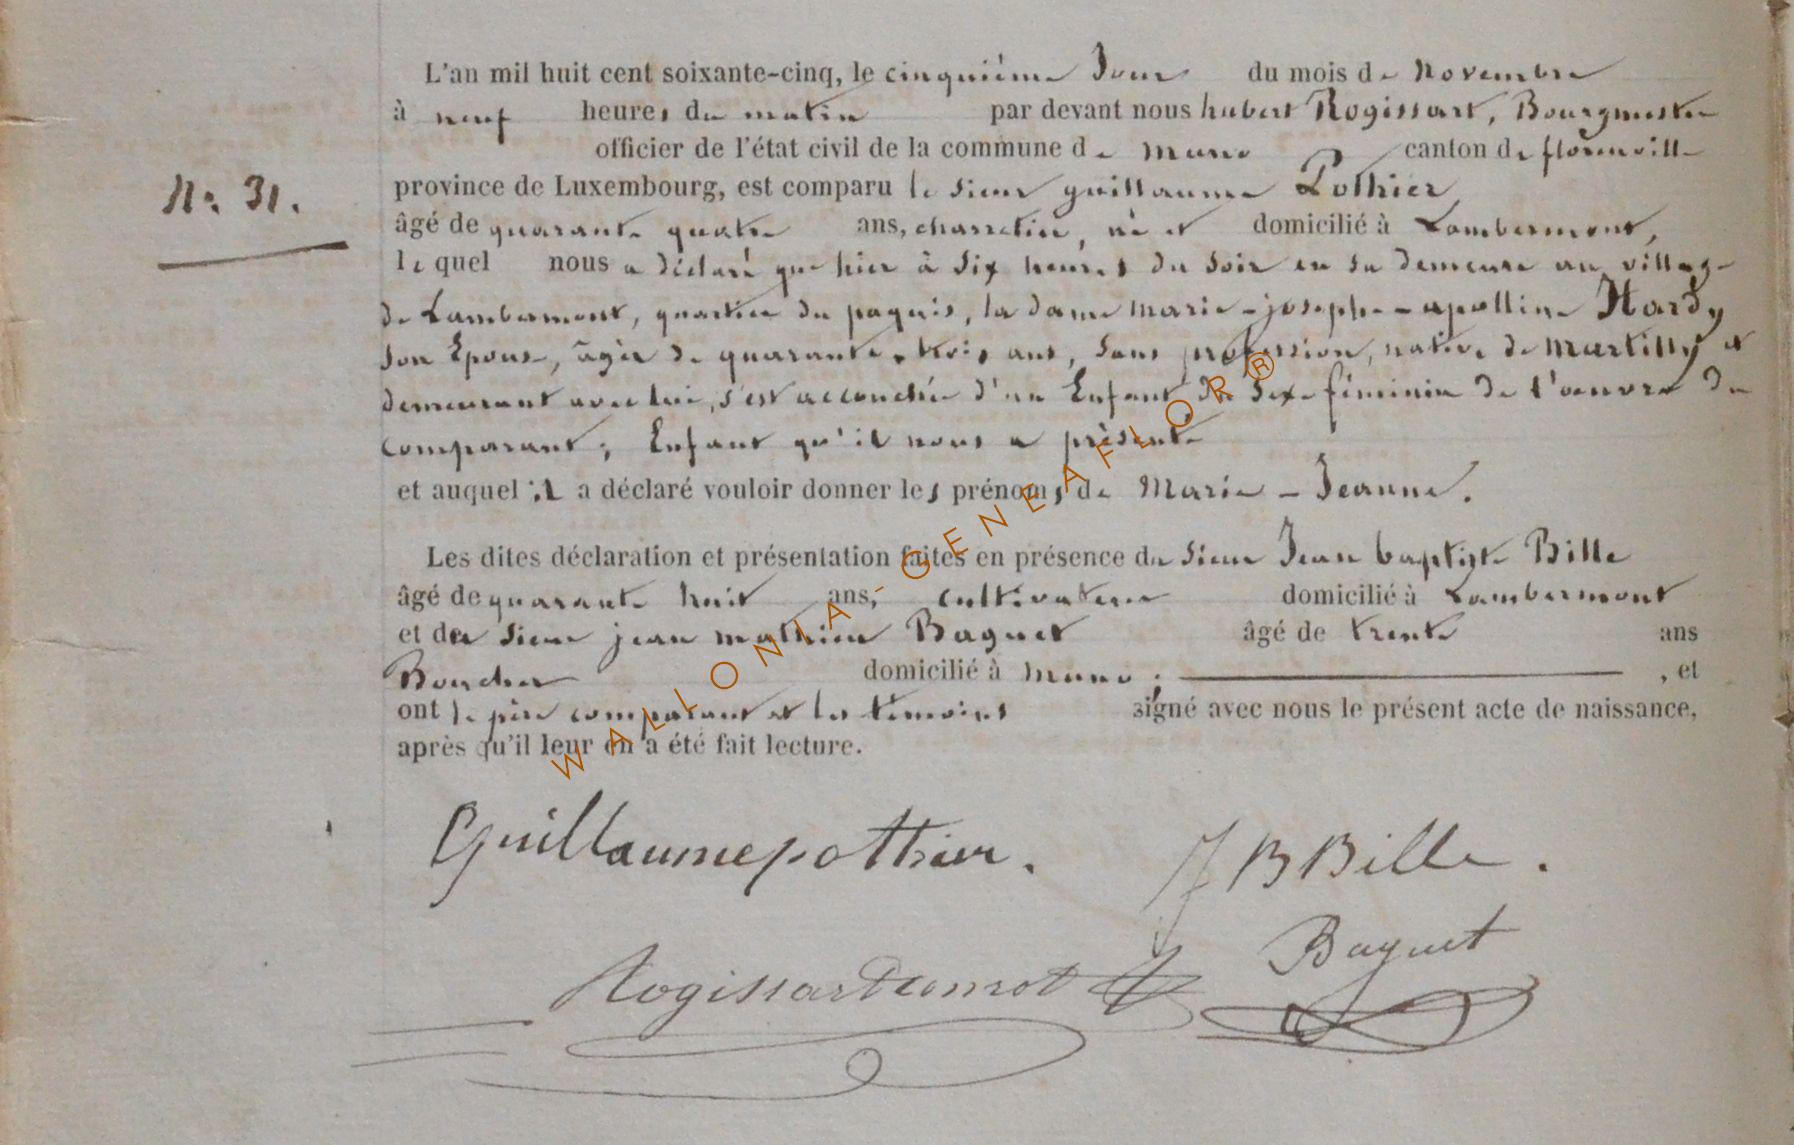 L'an mil huit cent soixante-cinq, le cinquième Jour du mois de Novembre
à neuf heures du matin par devant nous hubert Rogissart, Bourgmestre
officier de l'état civil de la commune de muno canton de florenville
N° 31.
province de Luxembourg, est comparu le sieur guillaume Pothier,
âgé de quarante quatre ans, charretier, né et domicilié à Lambermont,
lequel nous a déclaré que hier à six heures du soir en sa demeure au village
de Lambermont, quartier du paquis, la dame marie-josephe-apolline Hardy
son Epouse, âgée de quarante-trois ans, sans profession, native de martilly et
demeurant avec lui, s'est accouchée d'un Enfant du sexe féminin de l'œuvre du
comparant; Enfant qu'il nous a présenté
et auquel il a déclaré vouloir donner les prénoms de Marie-Jeanne.
Les dites déclaration et présentation faites en présence du sieur Jean baptiste Bille
âgé de quarante huit ans, cultivateur domicilié à Lambermont
et du sieur jean mathieu Baguet âgé de trente ans
Boucher domicilié à muno; , et
ont le père comparant et les témoins signé avec nous le présent acte de naissance,
après qu'il leur en a été fait lecture.
Guillaume pothier. JB Bille.
Baguet
WALLONIA-GENEAFLOR®